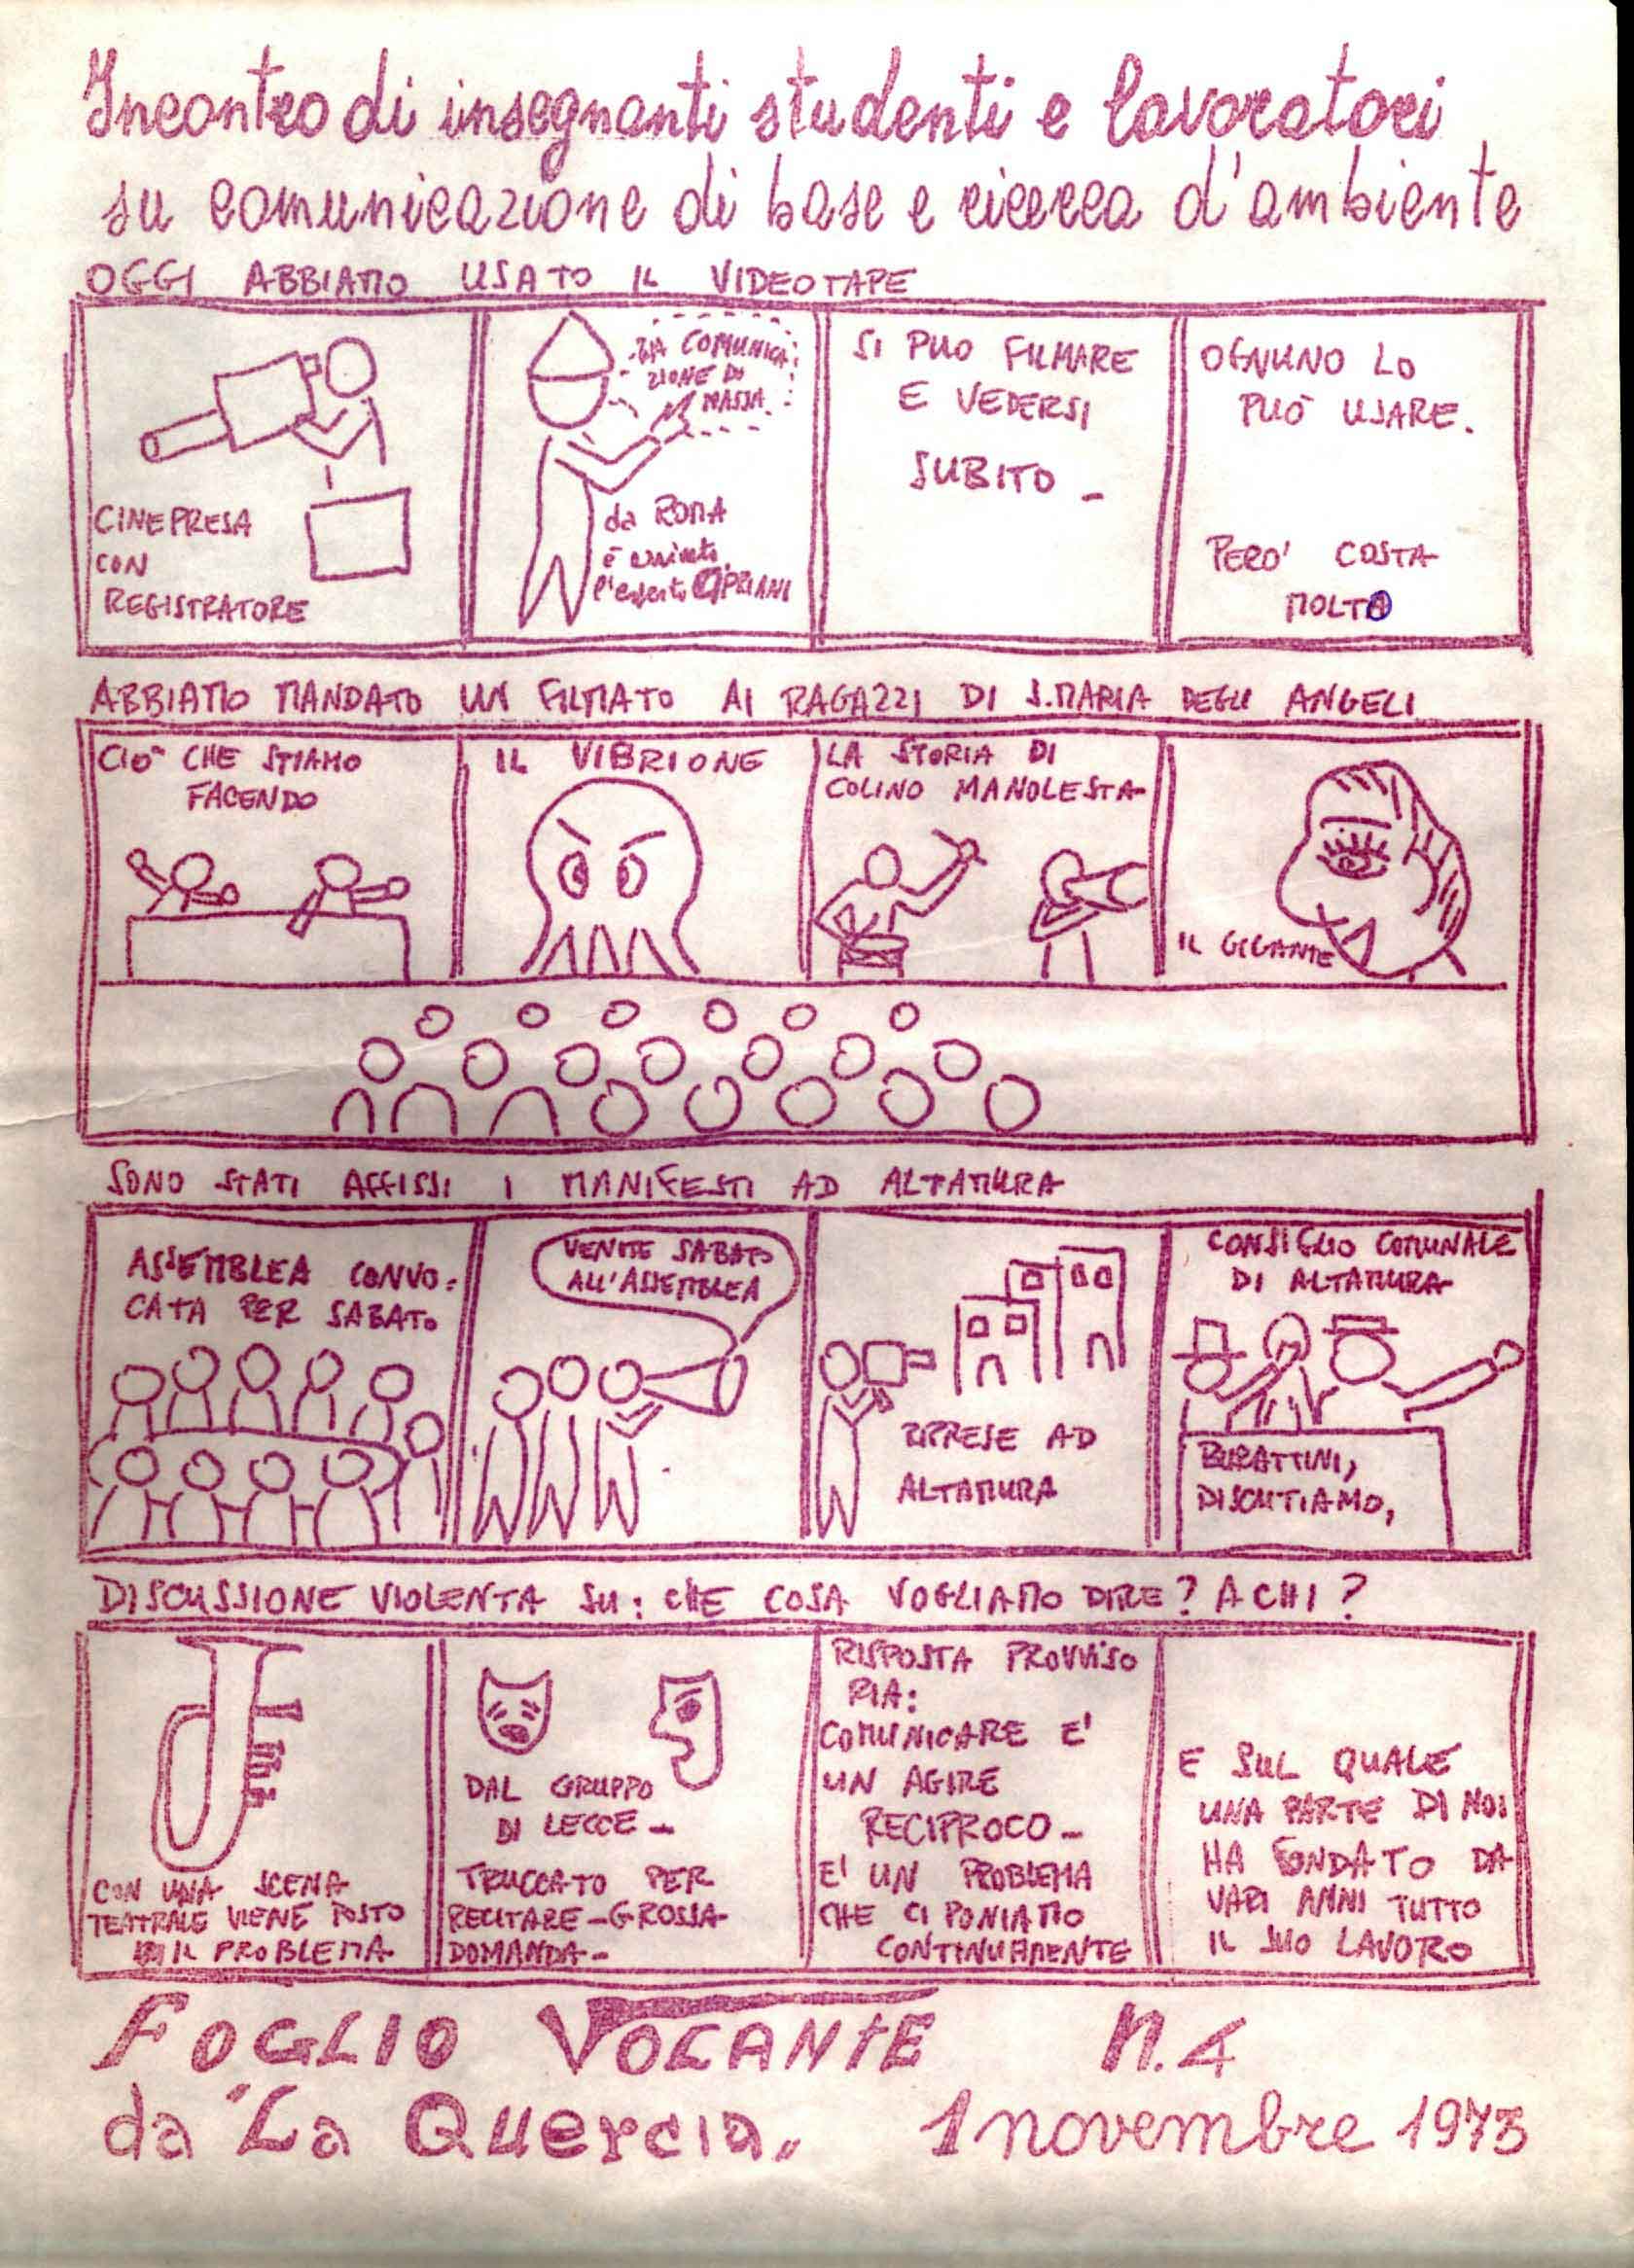 Incontro di insegnanti studenti e lavoratori
su comunicazione di base e ricerca d'ambiente
OGGI ABBIAMO USATO IL VIDEOTAPE
CINEPRESA
CON
REGISTRATORE
COMUNICA
ZIONE DI
MASSA.
da ROMA
è arrivato
l'esperto CIPRIANI
SI PUO FILMARE
E VEDERSI
SUBITO -
OGNUNO LO
PUÒ USARE.
PERO' COSTA
MOLTO
ABBIAMO MANDATO UN FILMATO AI RAGAZZI DI S.MARIA DEGLI ANGELI
CIO' CHE STIAMO
FACENDO
IL VIBRIONE
LA STORIA DI
COLINO MANOLESTA
IL GIGANTE
SONO STATI AFFISSI I MANIFESTI AD ALTAMURA
ASSEMBLEA CONVO=
CATA PER SABATO
VENITE SABATO
ALL'ASSEMBLEA
RIPRESE AD
ALTAMURA
CONSIGLIO COMUNALE
DI ALTAMURA
BURATTINI,
DISCUTIAMO,
DISCUSSIONE VIOLENTA SU: CHE COSA VOGLIAMO DIRE? A CHI?
CON UNA SCENA
TEATRALE VIENE POSTO
IL PROBLEMA
DAL GRUPPO
DI LECCE -
TRUCCATO PER
RECITARE - GROSSA
DOMANDA -
RISPOSTA PROVVISO
RIA:
COMUNICARE E'
UN AGIRE
RECIPROCO -
E' UN PROBLEMA
CHE CI PONIAMO
CONTINUAMENTE
E SUL QUALE
UNA PARTE DI NOI
HA FONDATO DA
VARI ANNI TUTTO
IL SUO LAVORO
FOGLIO VOLANTE N.4
da "La Quercia" 1 novembre 1973